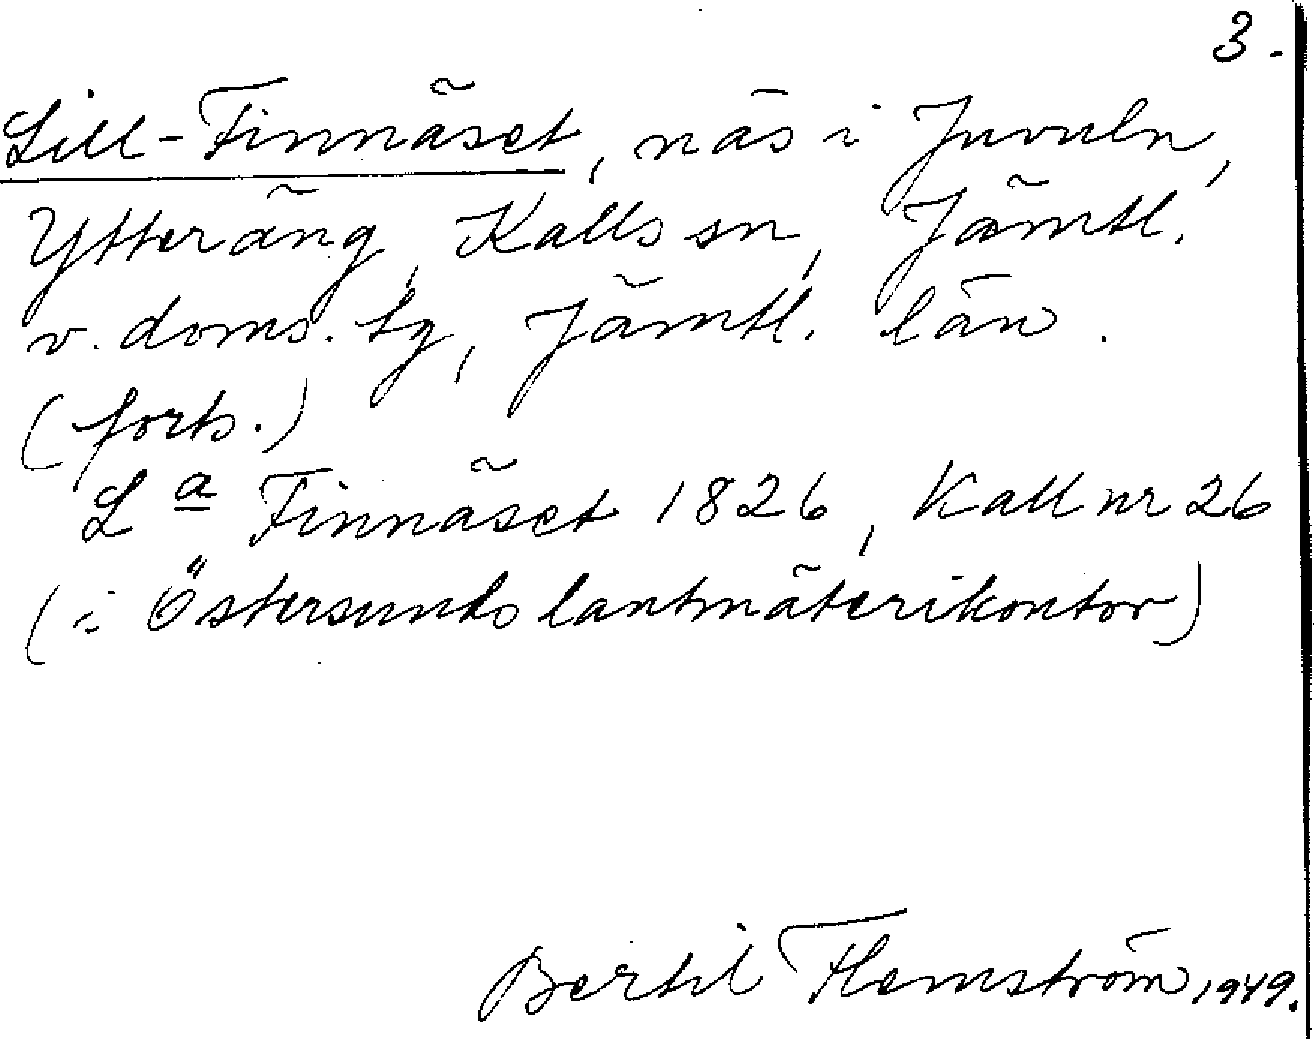 3.
Lill-Finnäset, näs i Juvuln,
Ytteräng, Kalls sn, Jämtl.
v. doms. tg, Jämtl. län.
(forts.)
L a Finnäset 1826, Kall nr 26
(i Östersunds lantmäterikontor)
Bertil Flemström 1949.